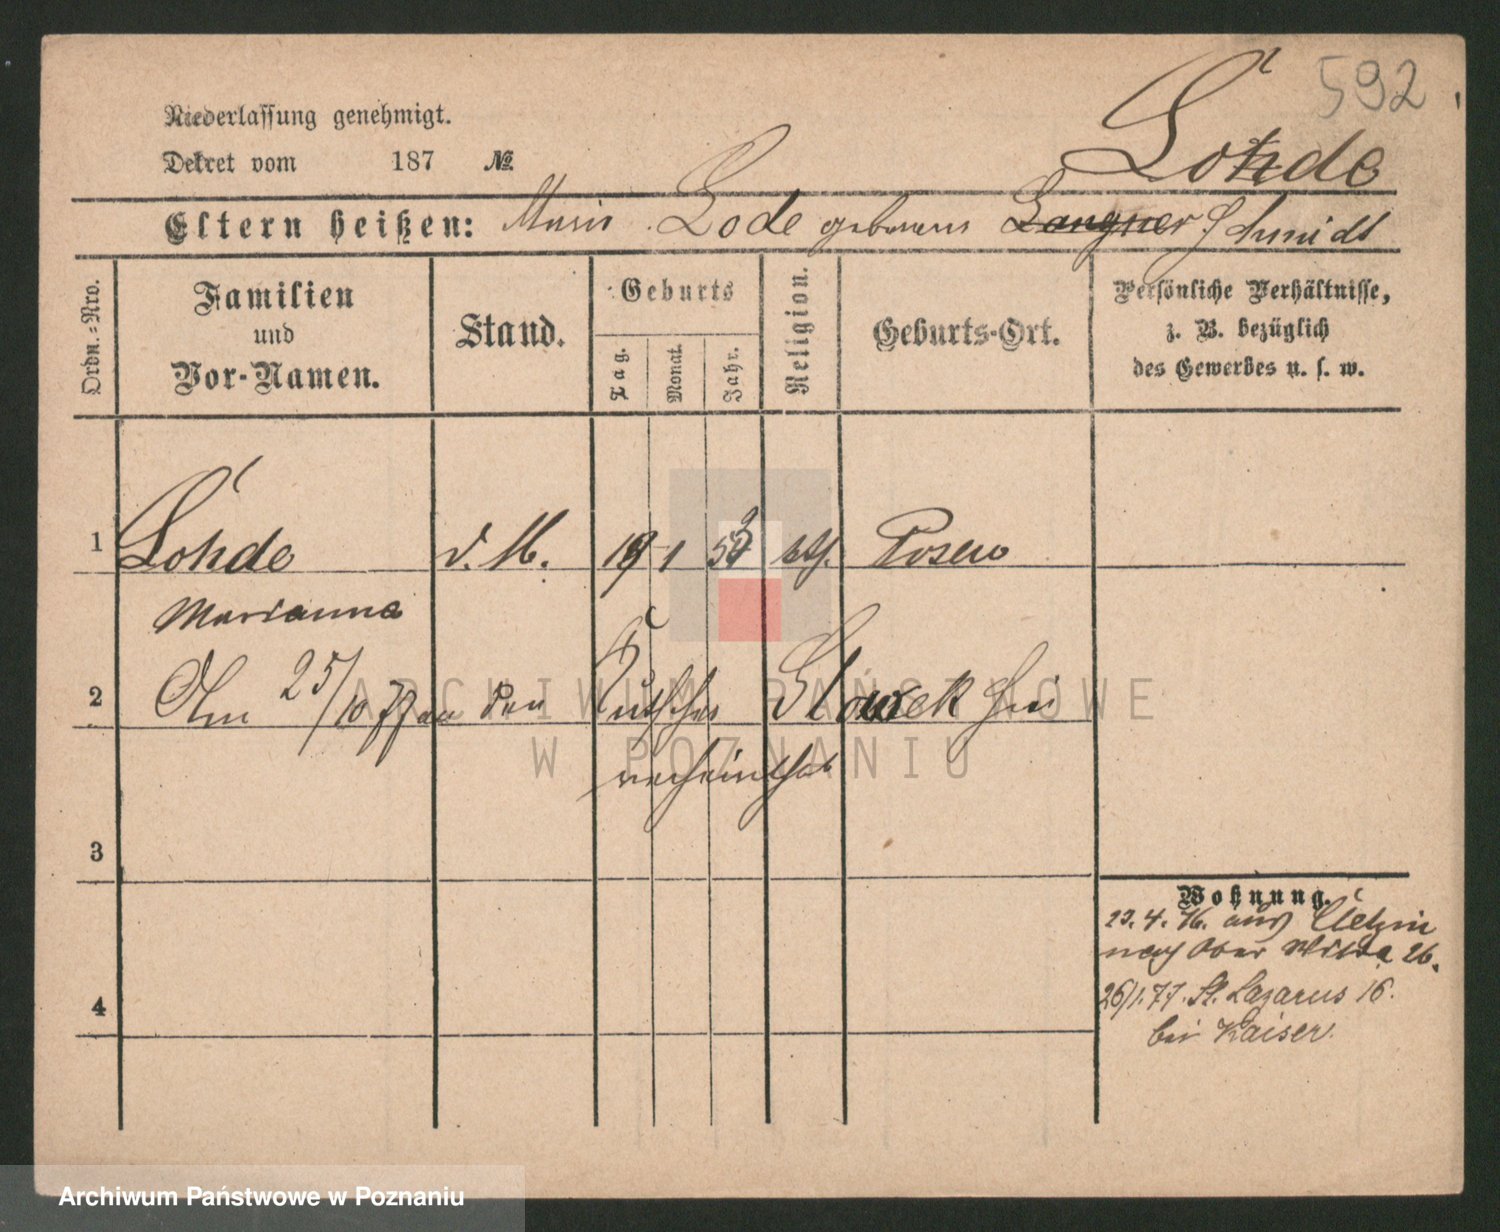 592
Niederlassung genehmigt.
Dekret vom 187 No.
Lohde
Eltern heißen: Marie Lode geborene Langner Schmidt
Ordn.=Nro.
Familien
und
Vor-Namen.
Stand.
Geburts
Tag.
Monat.
Jahr.
Religion.
Geburts-Ort.
Persönliche Verhältnisse,
z. B. bezüglich
des Gewerbes u. s. w.
1 Lohde d. M. 19 1 53 kth. Posen
Marianna
2 Am 25/10 77 an den Kutscher Slowek hier
verheirathet
3
4
Wohnung.
23. 4. 76. aus
nach Ober Wilda 26.
26/1. 77. St. Lazarus 16.
bei Kaiser.
ARCHIWUM PAŃSTWOWE
W POZNANIU
Archiwum Państwowe w Poznaniu